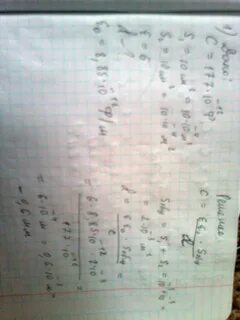 1) Дано:
C = 177·10⁻¹² Ф
S₁ = 10 см² = 10·10⁻⁴ м²
S₂ = 10 см² = 10⁻³ м²
ε = 6
d - ?
ε₀ = 8,85·10⁻¹² Ф/м
Решение
C = εε₀·Sобщ / d
Sобщ = S₁ + S₂ =
d = εε₀ Sобщ / C =
= 6·8,85·10⁻¹²·2·10⁻³ / 177·10⁻¹² =
= 6·10⁻⁴ м = 0,6·10⁻³ м =
= 0,6 мм